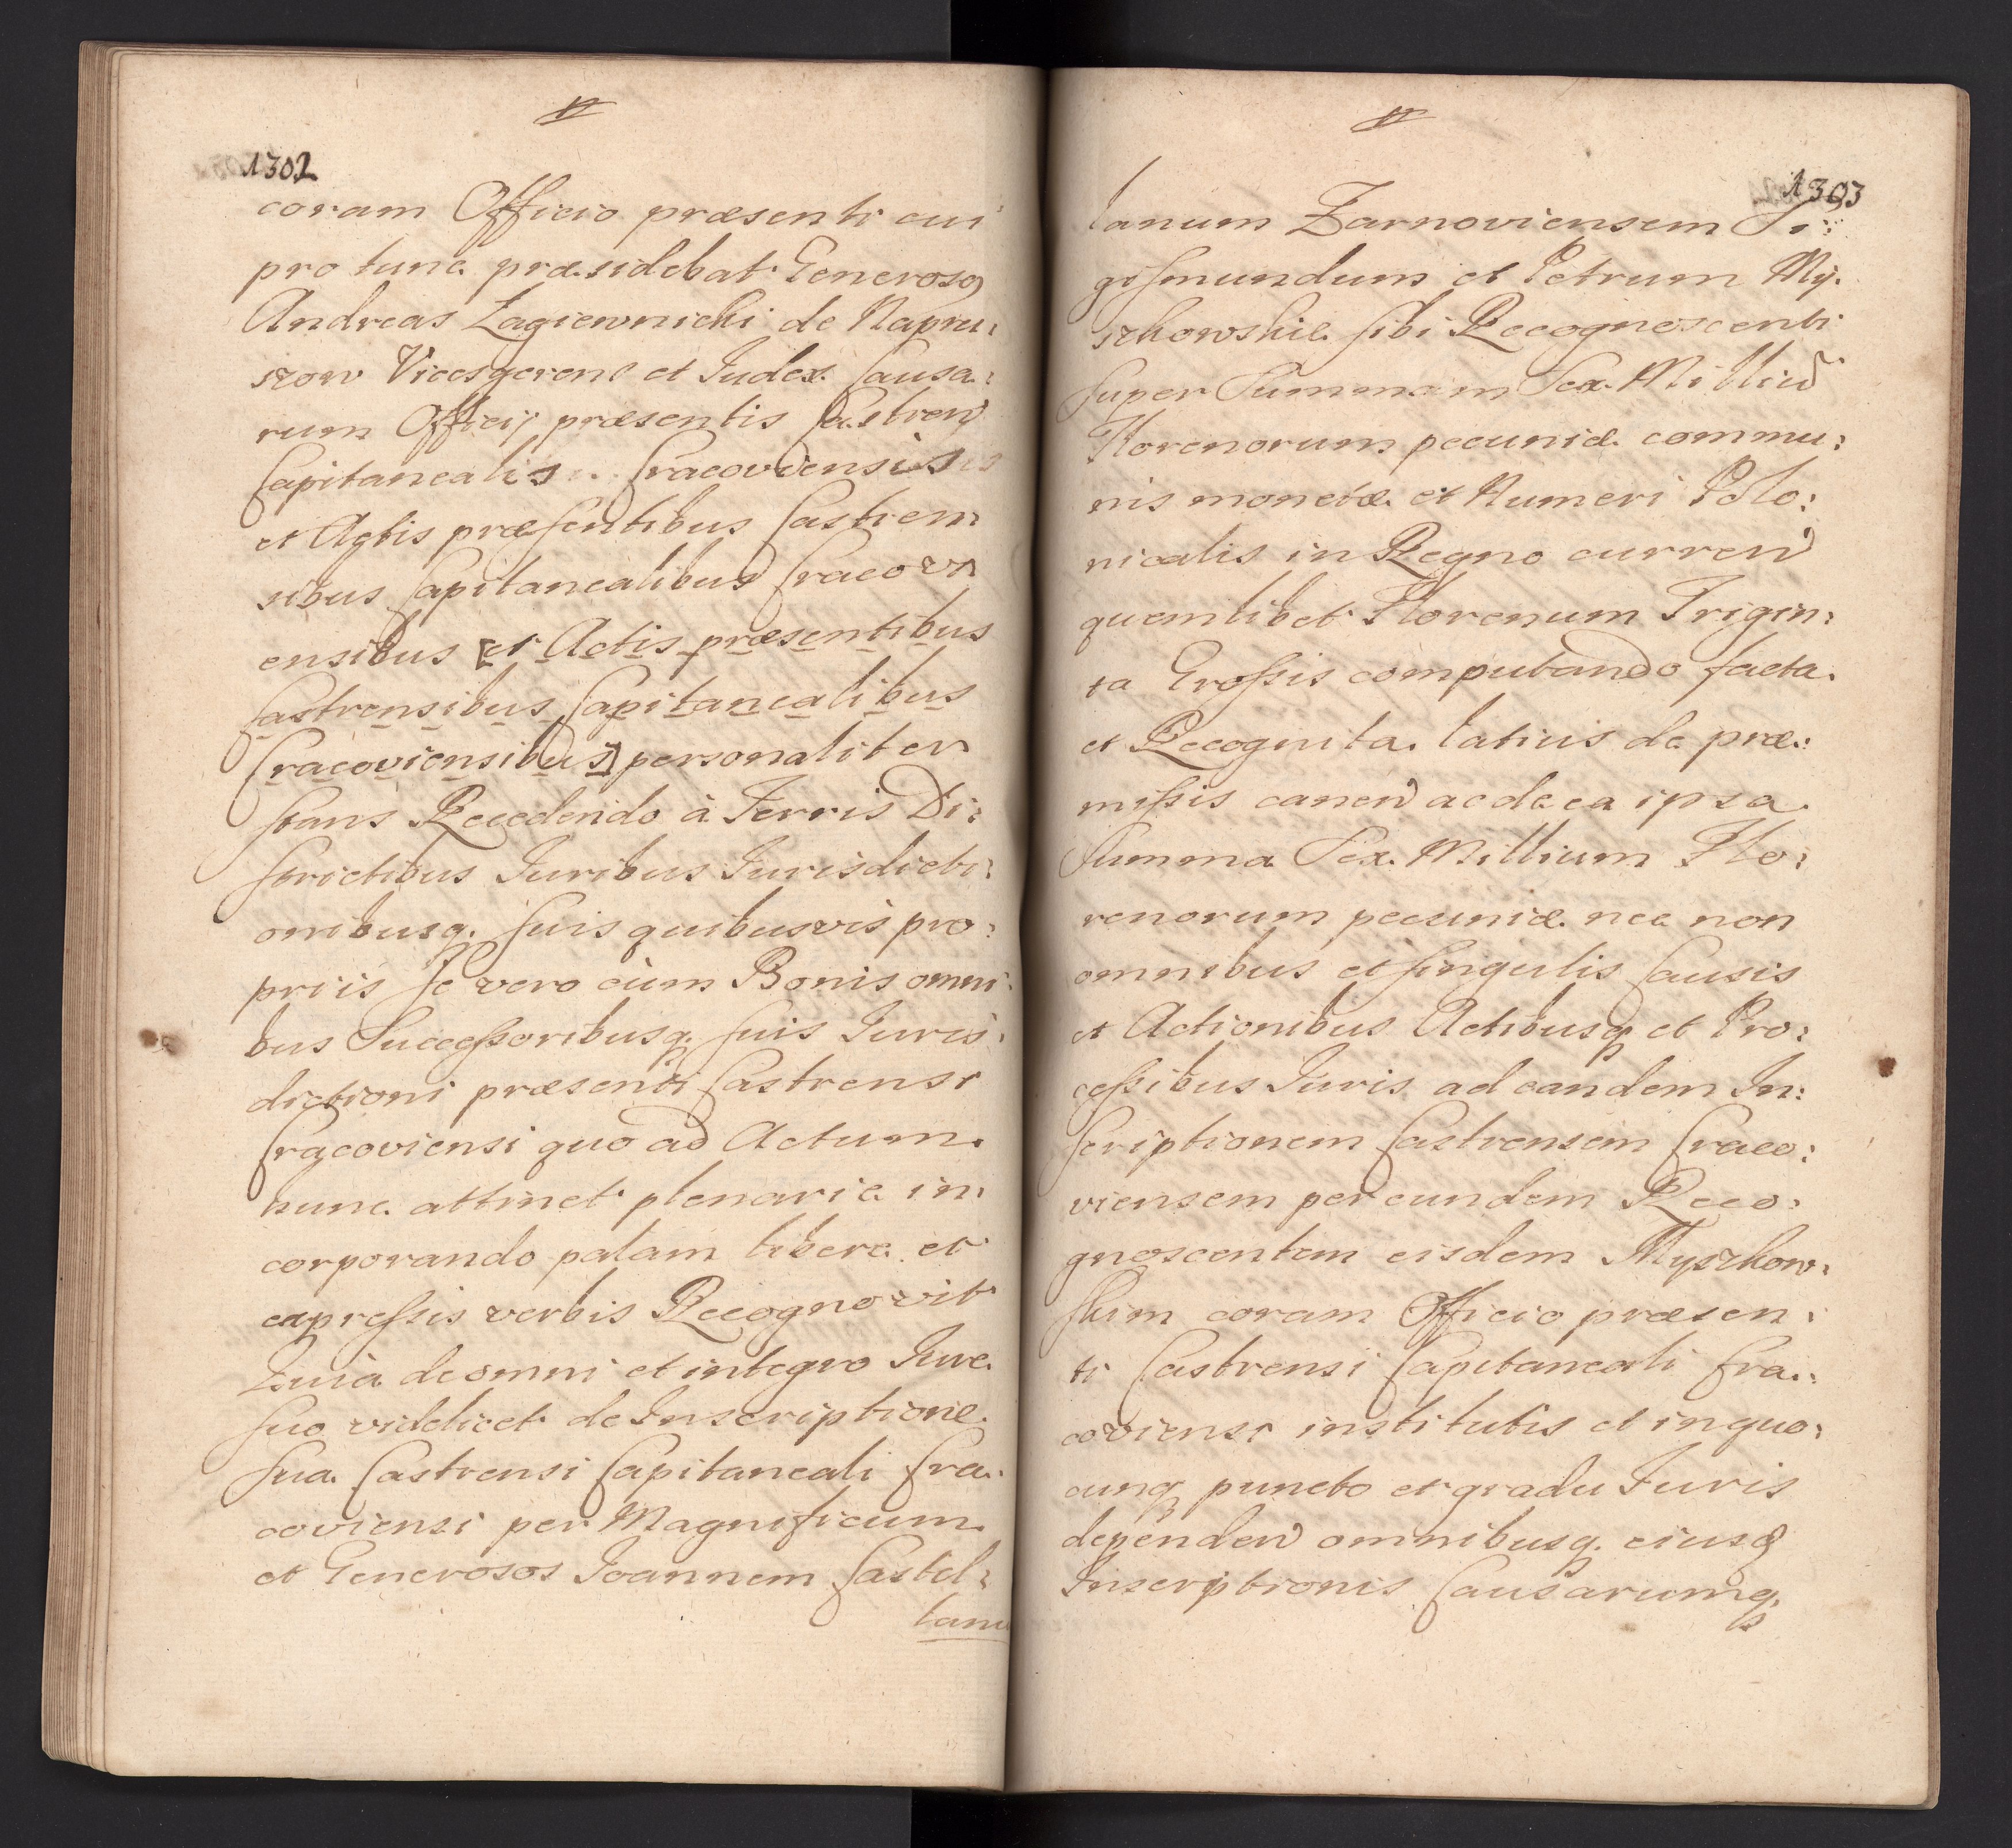 1302
coram Officio præsenti cui
pro tunc præsidebat Generosq
Andreas Łagiewnicki de Napru:
szow Vicesgerens et Judex Causa:
rum Officij præsentis Castren
Capitanealis Cracoviensis
et Actis præsentibus Castren
sibus Capitanealibus Cracovi
ensibus [et Actis præsentibus
Castrensibus Capitanealibus
Cracoviensibus] personaliter
stans Recedendo à Terris Di:
strictibus Juribus Jurisdicti:
onibusq. suis quibusvis pro:
priis se vero cum Bonis omni:
bus Successoribusq. suis Juris:
dictioni præsenti Castrensi
Cracoviensi quo ad Actum
hunc attinet plenarie in:
corporando palam libere et
expressis verbis Recognovit
Quia de omni et integro Jure
suo videlicet de Inscriptione
sua Castrensi Capitaneali Cra:
coviensi per Magnificum
et Generosos Joannem Castel:
lanu
1303
lanum Zarnoviensem Si:
gismundum et Petrum My:
szkowskie sibi Recognoscenti
super Summam Sex Milliu
Florenorum pecuniæ commu:
nis monetæ et Numeri Polo:
nicalis in Regno curren
quemlibet Florenum Trigin:
ta Grossis computando facta
et Recognita latius de præ:
missis canen ac de ea ipsa
Summa Sex Millium Flo:
renorum pecuniæ nec non
omnibus et singulis Causis
et Actionibus Actibusq et Pro:
cessibus Juris ad eandem In:
scriptionem Castrensem Craco:
viensem per eundem Reco:
gnoscentem eisdem Myszkow:
skim coram Officio præsen:
ti Castrensi Capitaneali Cra:
coviensi institutis et in quo:
cunq puncto et gradu Juris
dependen omnibusq. eiusd
Inscriptionis Causarumq.